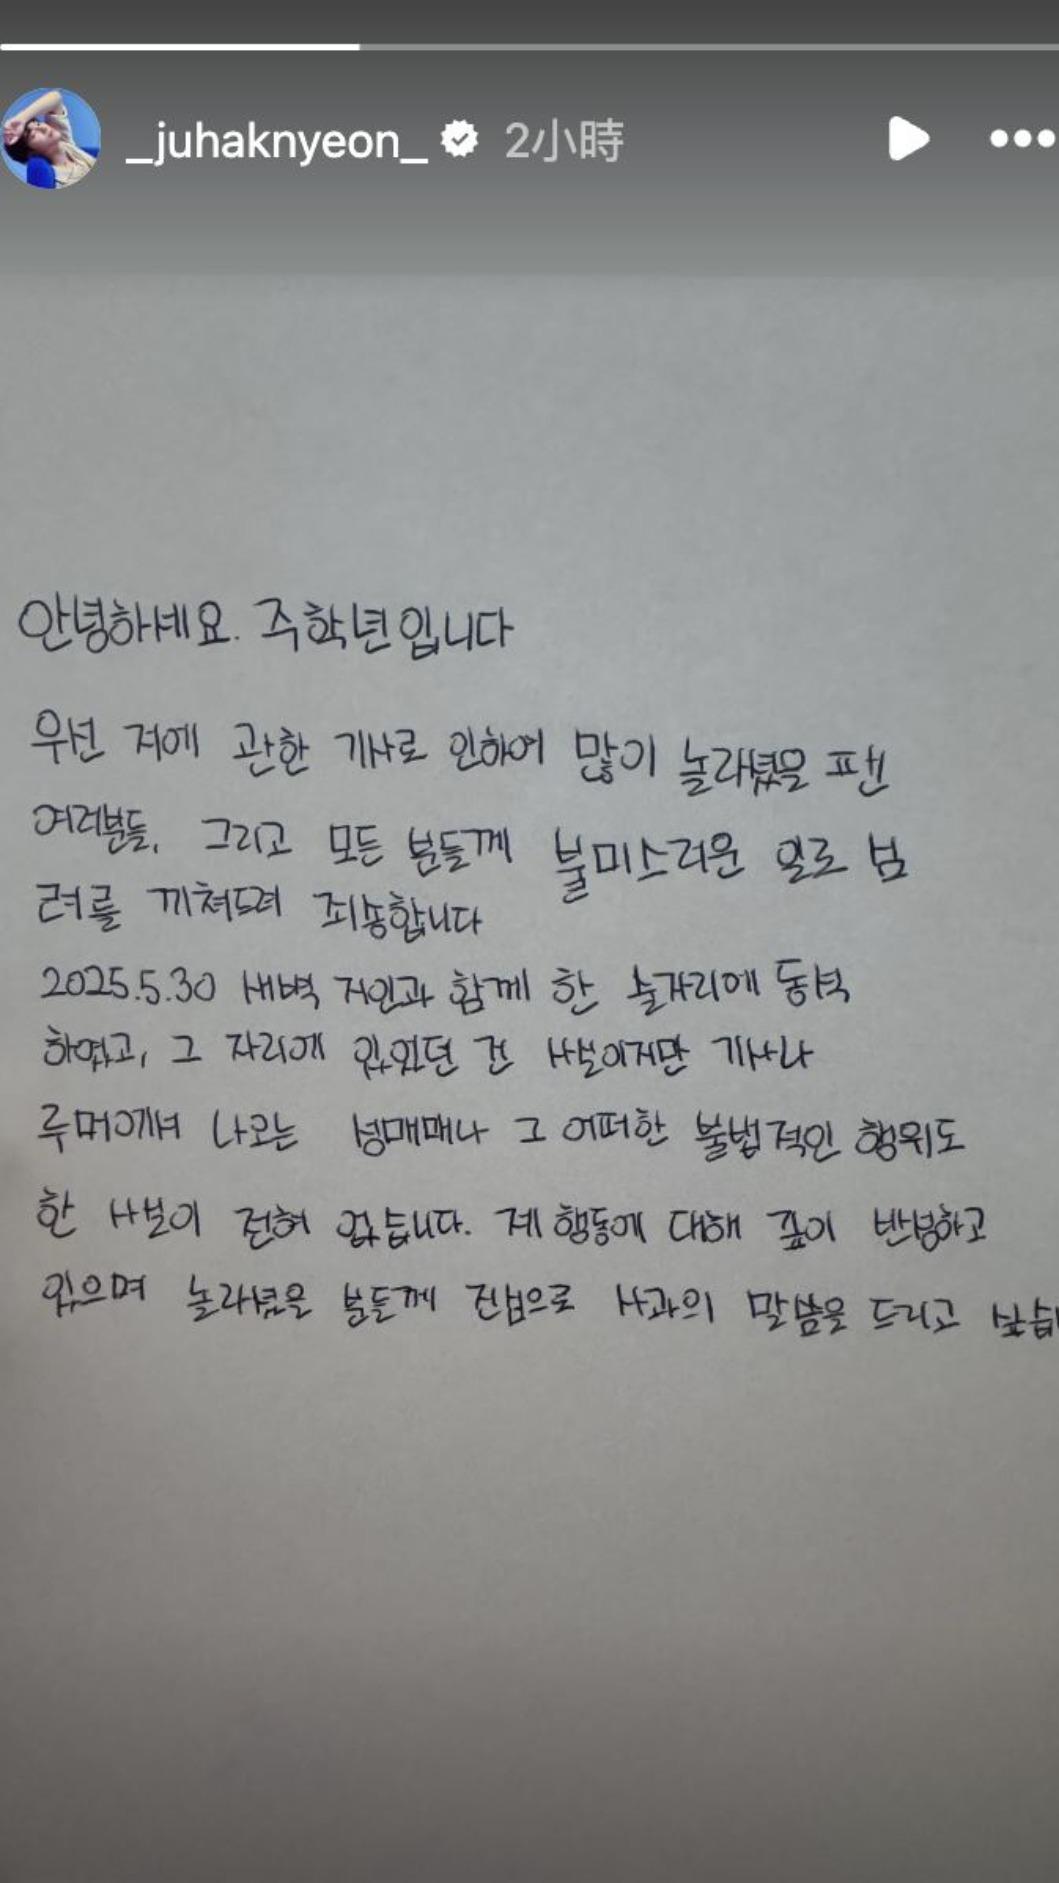 _juhaknyeon_ 2小時
안녕하세요. 주학년입니다
우선 저에 관한 기사로 인하여 많이 놀라셨을 팬
여러분들, 그리고 모든 분들께 불미스러운 일로 심
려를 끼쳐드려 죄송합니다
2025.5.30 새벽 지인과 함께 한 술자리에 동석
하였고, 그 자리에 있었던 건 사실이지만 기사나
루머에서 나오는 성매매나 그 어떠한 불법적인 행위도
한 사실이 전혀 없습니다. 제 행동에 대해 깊이 반성하고
있으며 놀라셨을 분들께 진심으로 사과의 말씀을 드리고